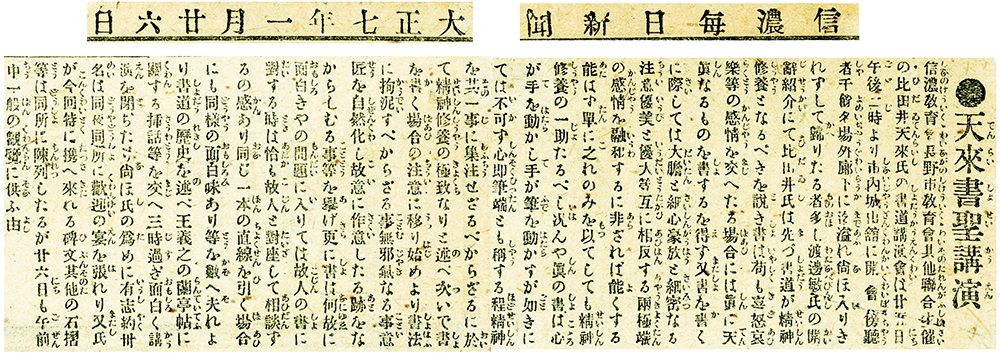 信濃毎日新聞
大正七年一月廿六日
●天來書聖講演
信濃教育會長野市教育會其他聯合主催
の比田井天來氏の書道講演會は廿五日
午後二時より市内城山館に開會傍聽
者千餘タ場外廊下に迄溢れ尙ほ入りき
れずして歸りたる者多し渡邊敏氏の開會の
辭紹介にて比田井氏は先づ書道が精神
修養となるべきを說き書は苟も喜怒哀
樂等の感情を交へたる場合には眞に天
眞なるものを書するを得ず又書を書く
に際しては大膽と細心豪放と細密なる
注意優美と優 等互に相反する兩極端
の感情を融和するに非ざれば能くする
能はず單に之れのみを以てしても精神
修養の一助たるべし况んや眞の書は心
が手を動かし手が筆を動かすが如きに
ては不可ず心卽筆端とも稱する程精神
を共一事に集注せざるべからざるに於
て精神修養の極致なりと述べ次いで書
を書く場合の注意に移り始めより書法
に拘泥すべからざる事無邪氣なる事意
匠を自然化し故意に作意したる跡をな
からしむる事等を擧げ更に書は何故に
面白きやの問題に入りては故人の書に
對する時は恰も故人と對座して相談す
るの感あり同じ一本の直線を引く場合
にも同樣の面白味あり等を數へ夫れよ
り書道の歷史を述べ王義之の蘭亭帖に
關する揷話等を交へ三時過ぎ面白く講
演を閉ぢたり尙ほ氏の爲めに有志約卅
名は同夜同所に歡迎の宴を張れり又氏
が今回特に携へ來れる碑文其他の石摺
等は同所に陳列したるが廿六日も午前
中一般の觀覽に供ふ由